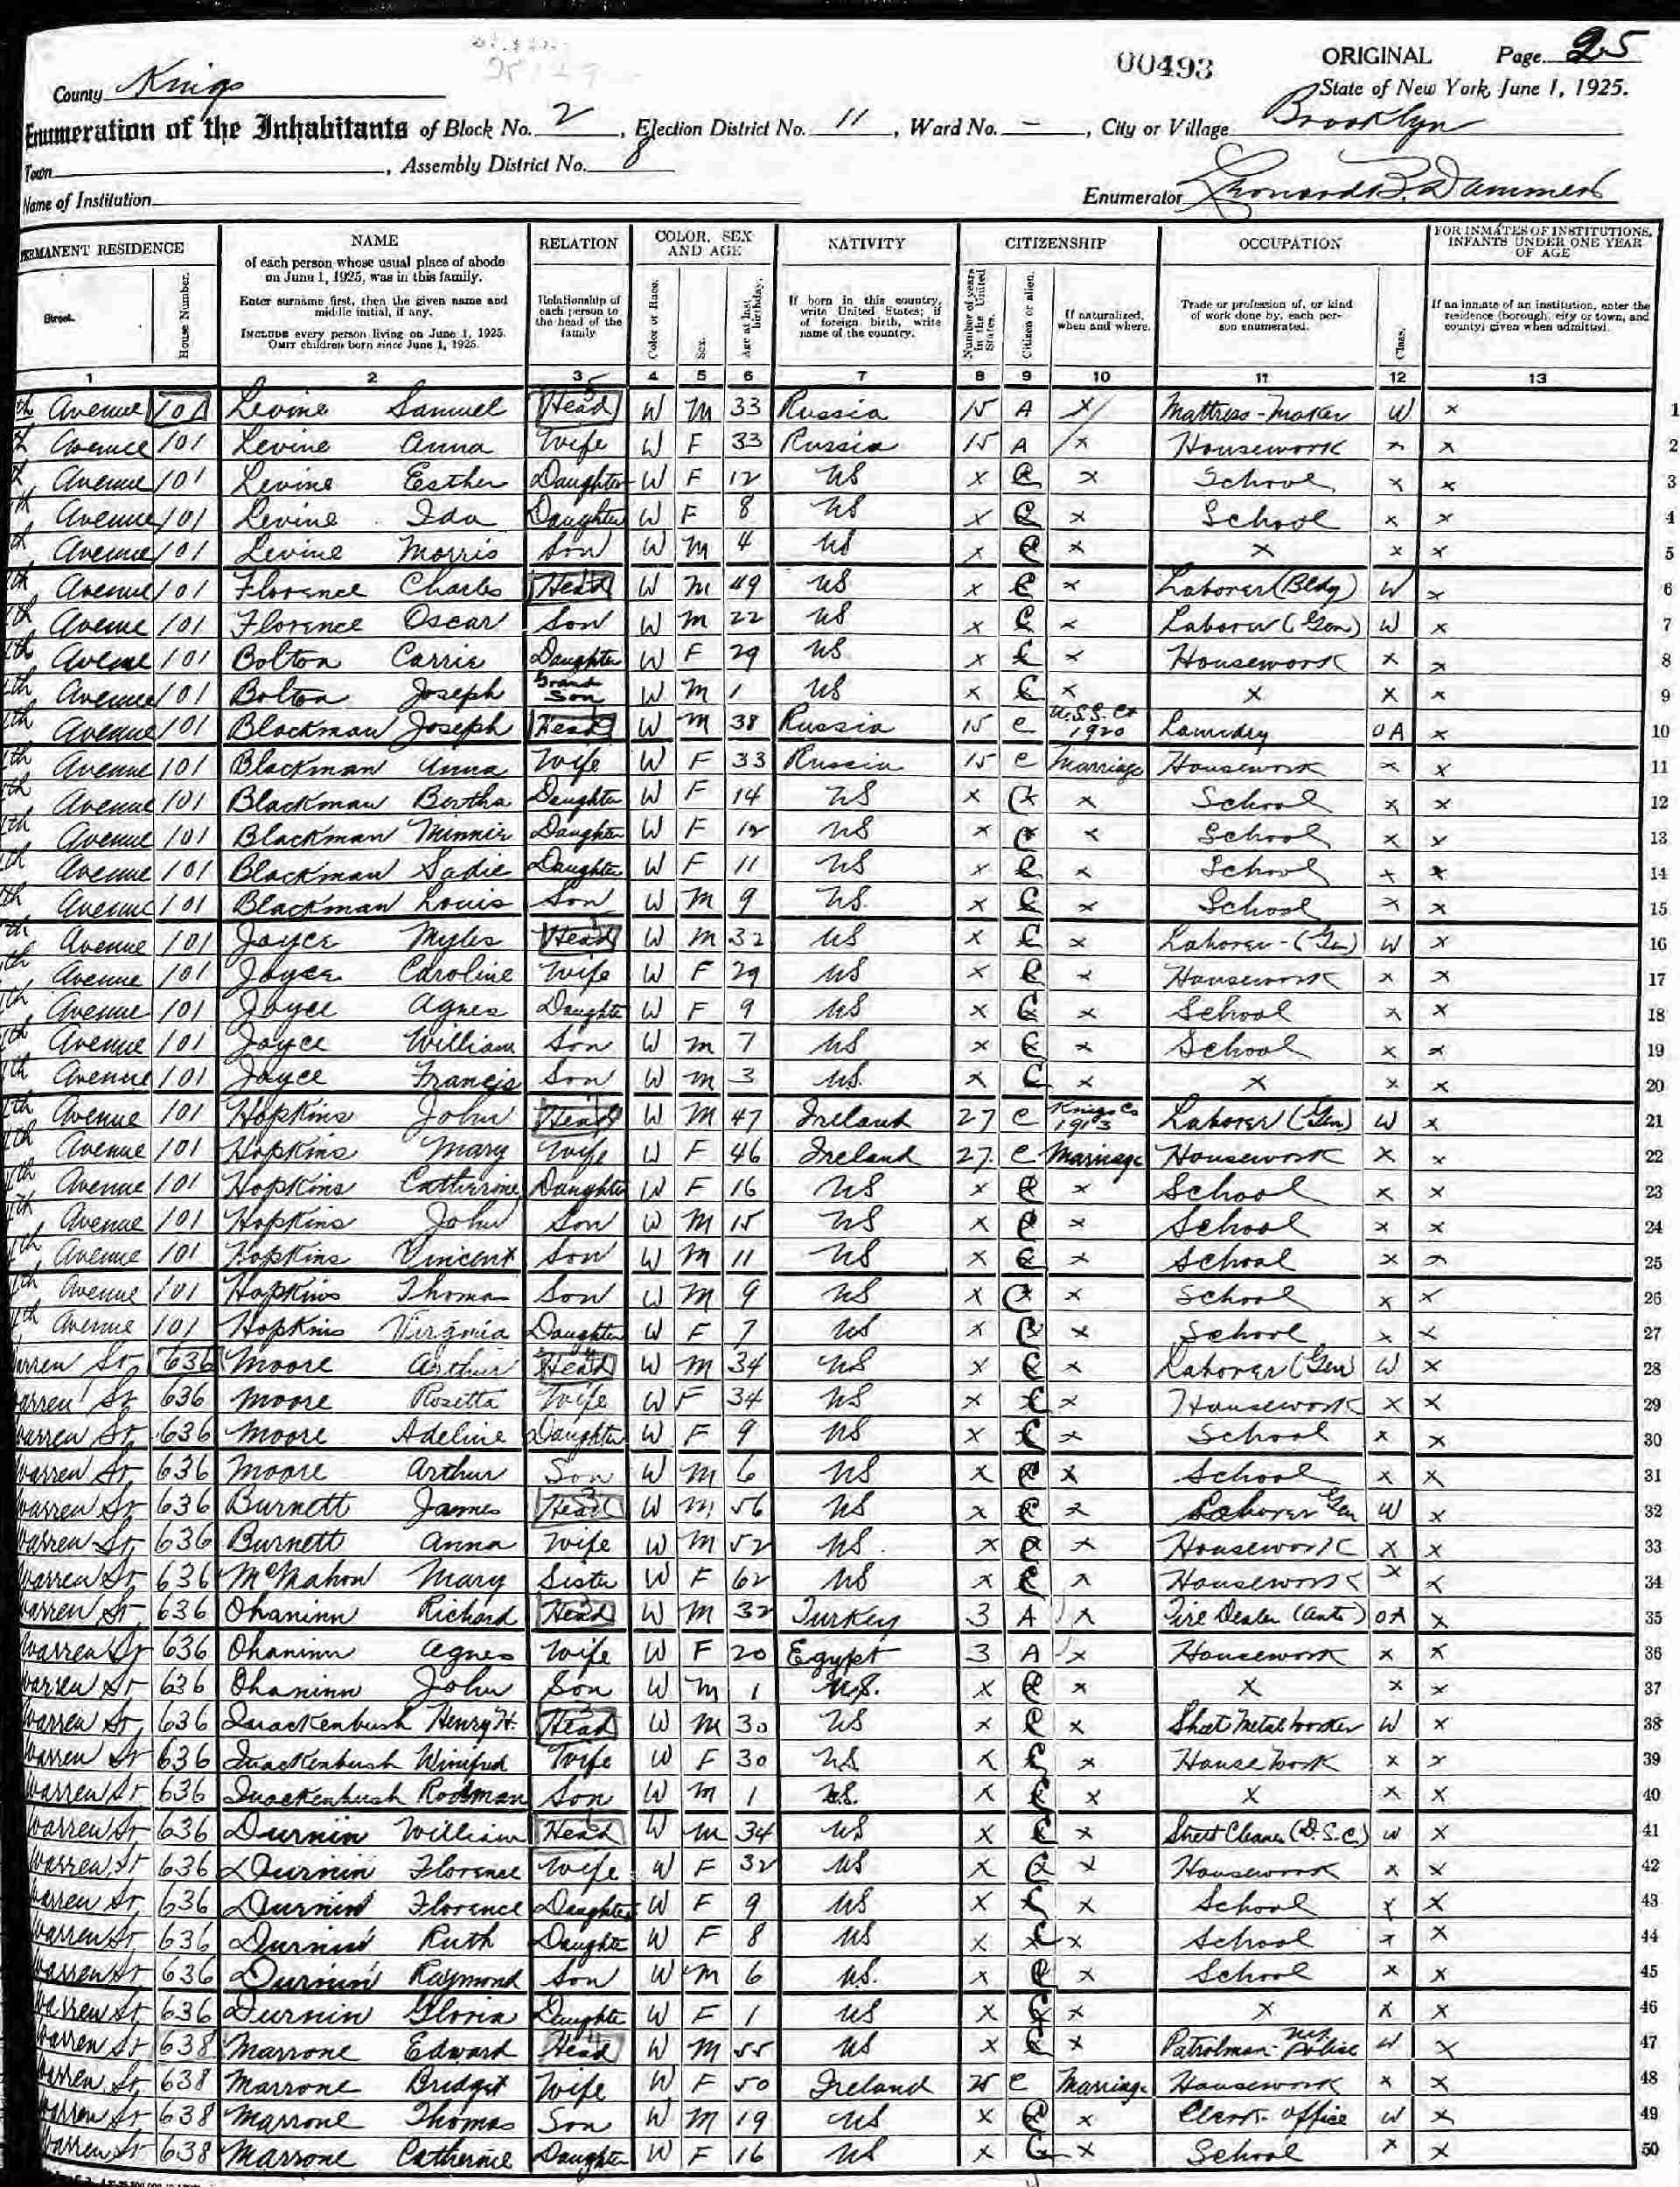 00493
ORIGINAL Page 25
County Kings
State of New York, June 1, 1925.
Enumeration of the Inhabitants of Block No. 2, Election District No. 11, Ward No. -, City or Village Brooklyn
Town , Assembly District No. 8
Name of Institution Enumerator
PERMANENT RESIDENCE NAME RELATION COLOR, SEX AND AGE NATIVITY CITIZENSHIP OCCUPATION FOR INMATES OF INSTITUTIONS, INFANTS UNDER ONE YEAR OF AGE
Street. House Number. of each person whose usual place of abode on June 1, 1925, was in this family. Enter surname first, then the given name and middle initial, if any. INCLUDE every person living on June 1, 1925. OMIT children born since June 1, 1925. Relationship of each person to the head of the family Color or Race. Sex. Age at last birthday. If born in this country, write United States; if of foreign birth, write name of the country. Number of years in the United States. Citizen or alien. If naturalized, when and where. Trade or profession of, or kind of work done by, each person enumerated. Class. If an inmate of an institution, enter the residence (borough, city or town, and county) given when admitted.
1 2 3 4 5 6 7 8 9 10 11 12 13
th Avenue 101 Levine Samuel Head W M 33 Russia 15 A x Mattress-Maker W x 1
th Avenue 101 Levine Anna Wife W F 33 Russia 15 A x Housework x x 2
th Avenue 101 Levine Esther Daughter W F 12 US x C x School x x 3
th Avenue 101 Levine Ida Daughter W F 8 US x C x School x x 4
th Avenue 101 Levine Morris Son W M 4 US x C x x x x 5
th Avenue 101 Florence Charles Head W M 49 US x C x Laborer (Bldg) W x 6
th Avenue 101 Florence Oscar Son W M 22 US x C x Laborer (Gen) W x 7
th Avenue 101 Bolton Carrie Daughter W F 29 US x C x Housework x x 8
th Avenue 101 Bolton Joseph Grand Son W M 1 US x C x x x x 9
th Avenue 101 Blackman Joseph Head W M 38 Russia 15 C 1920 Laundry OA x 10
th Avenue 101 Blackman Anna Wife W F 33 Russia 15 C Marriage Housework x x 11
th Avenue 101 Blackman Bertha Daughter W F 14 US x C x School x x 12
th Avenue 101 Blackman Minnie Daughter W F 12 US x C x School x x 13
th Avenue 101 Blackman Sadie Daughter W F 11 US x C x School x x 14
th Avenue 101 Blackman Louis Son W M 9 US. x C x School x x 15
th Avenue 101 Joyce Myles Head W M 32 US x C x Laborer-(Gen) W x 16
th Avenue 101 Joyce Caroline Wife W F 29 US x C x Housework x x 17
th Avenue 101 Joyce Agnes Daughter W F 9 US x C x School x x 18
th Avenue 101 Joyce William Son W M 7 US x C x School x x 19
th Avenue 101 Joyce Francis Son W M 3 US. x C x x x x 20
th Avenue 101 Hopkins John Head W M 47 Ireland 27 C Kings Co 1913 Laborer (Gen) W x 21
th Avenue 101 Hopkins Mary Wife W F 46 Ireland 27 C Marriage Housework x x 22
th Avenue 101 Hopkins Catherine Daughter W F 16 US x C x School x x 23
th Avenue 101 Hopkins John Son W M 15 US x C x School x x 24
th Avenue 101 Hopkins Vincent Son W M 11 US x C x School x x 25
th Avenue 101 Hopkins Thomas Son W M 9 US x C x School x x 26
th Avenue 101 Hopkins Virginia Daughter W F 7 US x C x School x x 27
Warren St, 636 Moore Arthur Head W M 34 US x C x Laborer (Gen) W x 28
Warren St 636 Moore Rosetta Wife W F 34 US x C x Housework x x 29
Warren St, 636 Moore Adeline Daughter W F 9 US x C x School x x 30
Warren St, 636 Moore Arthur Son W M 6 US x C x School x x 31
Warren St 636 Burnett James Head W M 56 US x C x Laborer Gen W x 32
Warren St, 636 Burnett Anna Wife W M 52 US. x C x Housework x x 33
Warren St 636 McMahon Mary Sister W F 62 US x C x Housework x x 34
Warren St, 636 Ohaninn Richard Head W M 32 Turkey 3 A x Tire Dealer (Auto) OA x 35
Warren St 636 Ohaninn Agnes Wife W F 20 Egypt 3 A x Housework x x 36
Warren St 636 Ohaninn John Son W M 1 U.S. x C x x x x 37
Warren St, 636 Quackenbush Henry H. Head W M 30 US x C x Sheet Metal Worker W x 38
Warren St 636 Quackenbush Winifred Wife W F 30 US x C x House Work x x 39
Warren St 636 Quackenbush Rodman Son W M 1 U.S. x C x x x x 40
Warren St 636 Durnin William Head W M 34 US x C x Street Cleaner (D.S.C.) W x 41
Warren St 636 Durnin Florence Wife W F 32 US x C x Housework x x 42
Warren St, 636 Durnin Florence Daughter W F 9 US x C x School x x 43
Warren St 636 Durnin Ruth Daughter W F 8 US x C x School x x 44
Warren St, 636 Durnin Raymond Son W M 6 U.S. x C x School x x 45
Warren St, 636 Durnin Gloria Daughter W F 1 US x C x x x x 46
Warren St 638 Marrone Edward Head W M 55 US x C x Patrolman- Police W x 47
Warren St, 638 Marrone Bridget Wife W F 50 Ireland 25 C Marriage Housework x x 48
Warren St, 638 Marrone Thomas Son W M 19 US x C x Clerk- office W x 49
Warren St 638 Marrone Catherine Daughter W F 16 US x C x School x x 50